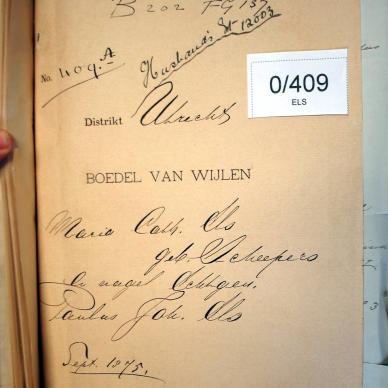 B 202 FG 137
Husband's Est 12603
No. 409.A
0/409
ELS
Distrikt Utrecht
BOEDEL VAN WIJLEN
Maria Cath. Els
geb. Scheepers
en nagel. Echtgen.
Paulus Joh. Els
Sept. 1875.